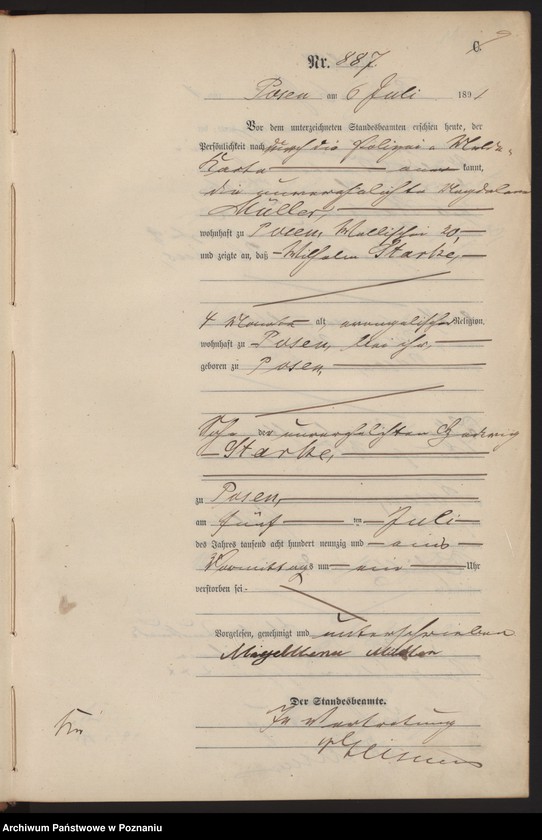 C.
Nr. 887
Posen am 6 Juli 1891
Vor dem unterzeichneten Standesbeamten erschien heute, der
Persönlichkeit nach durch die Polizei - Melde-
Karte anerkannt,
die unverehelichte Magdalena
Müller,
wohnhaft zu Posen, Wallischei 20,
und zeigte an, daß Wilhelm Starke,
4 Monate alt, evangelischer Religion,
wohnhaft zu Posen, bei ihr,
geboren zu Posen,
Sohn der unverehelichten Hedwig
Starke,
zu Posen,
am fünf ten Juli
des Jahres tausend acht hundert neunzig und eins
Vormittags um ein Uhr
verstorben sei.
Vorgelesen, genehmigt und unterschrieben
Der Standesbeamte.
In Vertretung
Archiwum Państwowe w Poznaniu